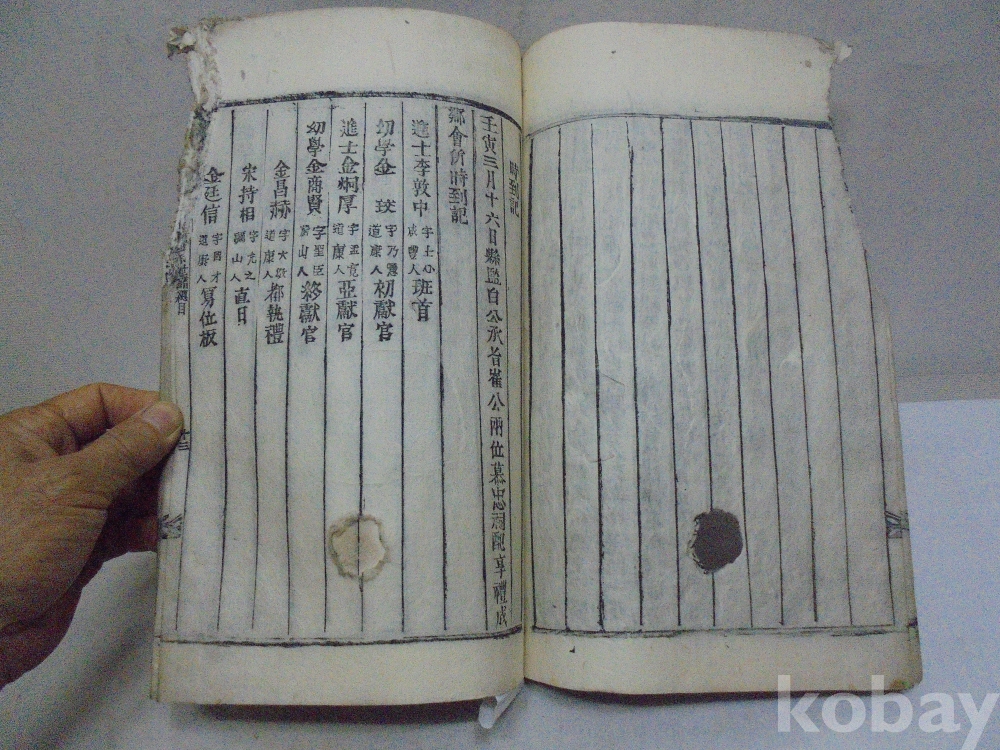 時到記
壬寅三月十六日縣監白公承旨崔公兩位慕忠祠配享禮成
鄕會所時到記
進士李敦中 班首
幼學金 初獻官
字乃 道康人
進士金炯厚 亞獻官
字孟 道康人
幼學金商賢 終獻官
字聖臣 山人
金昌赫 都執禮
字大 道康人
宋持相 直日
字 之 山人
金廷信 寫位板
字 才 道康人
目
十三
kobay